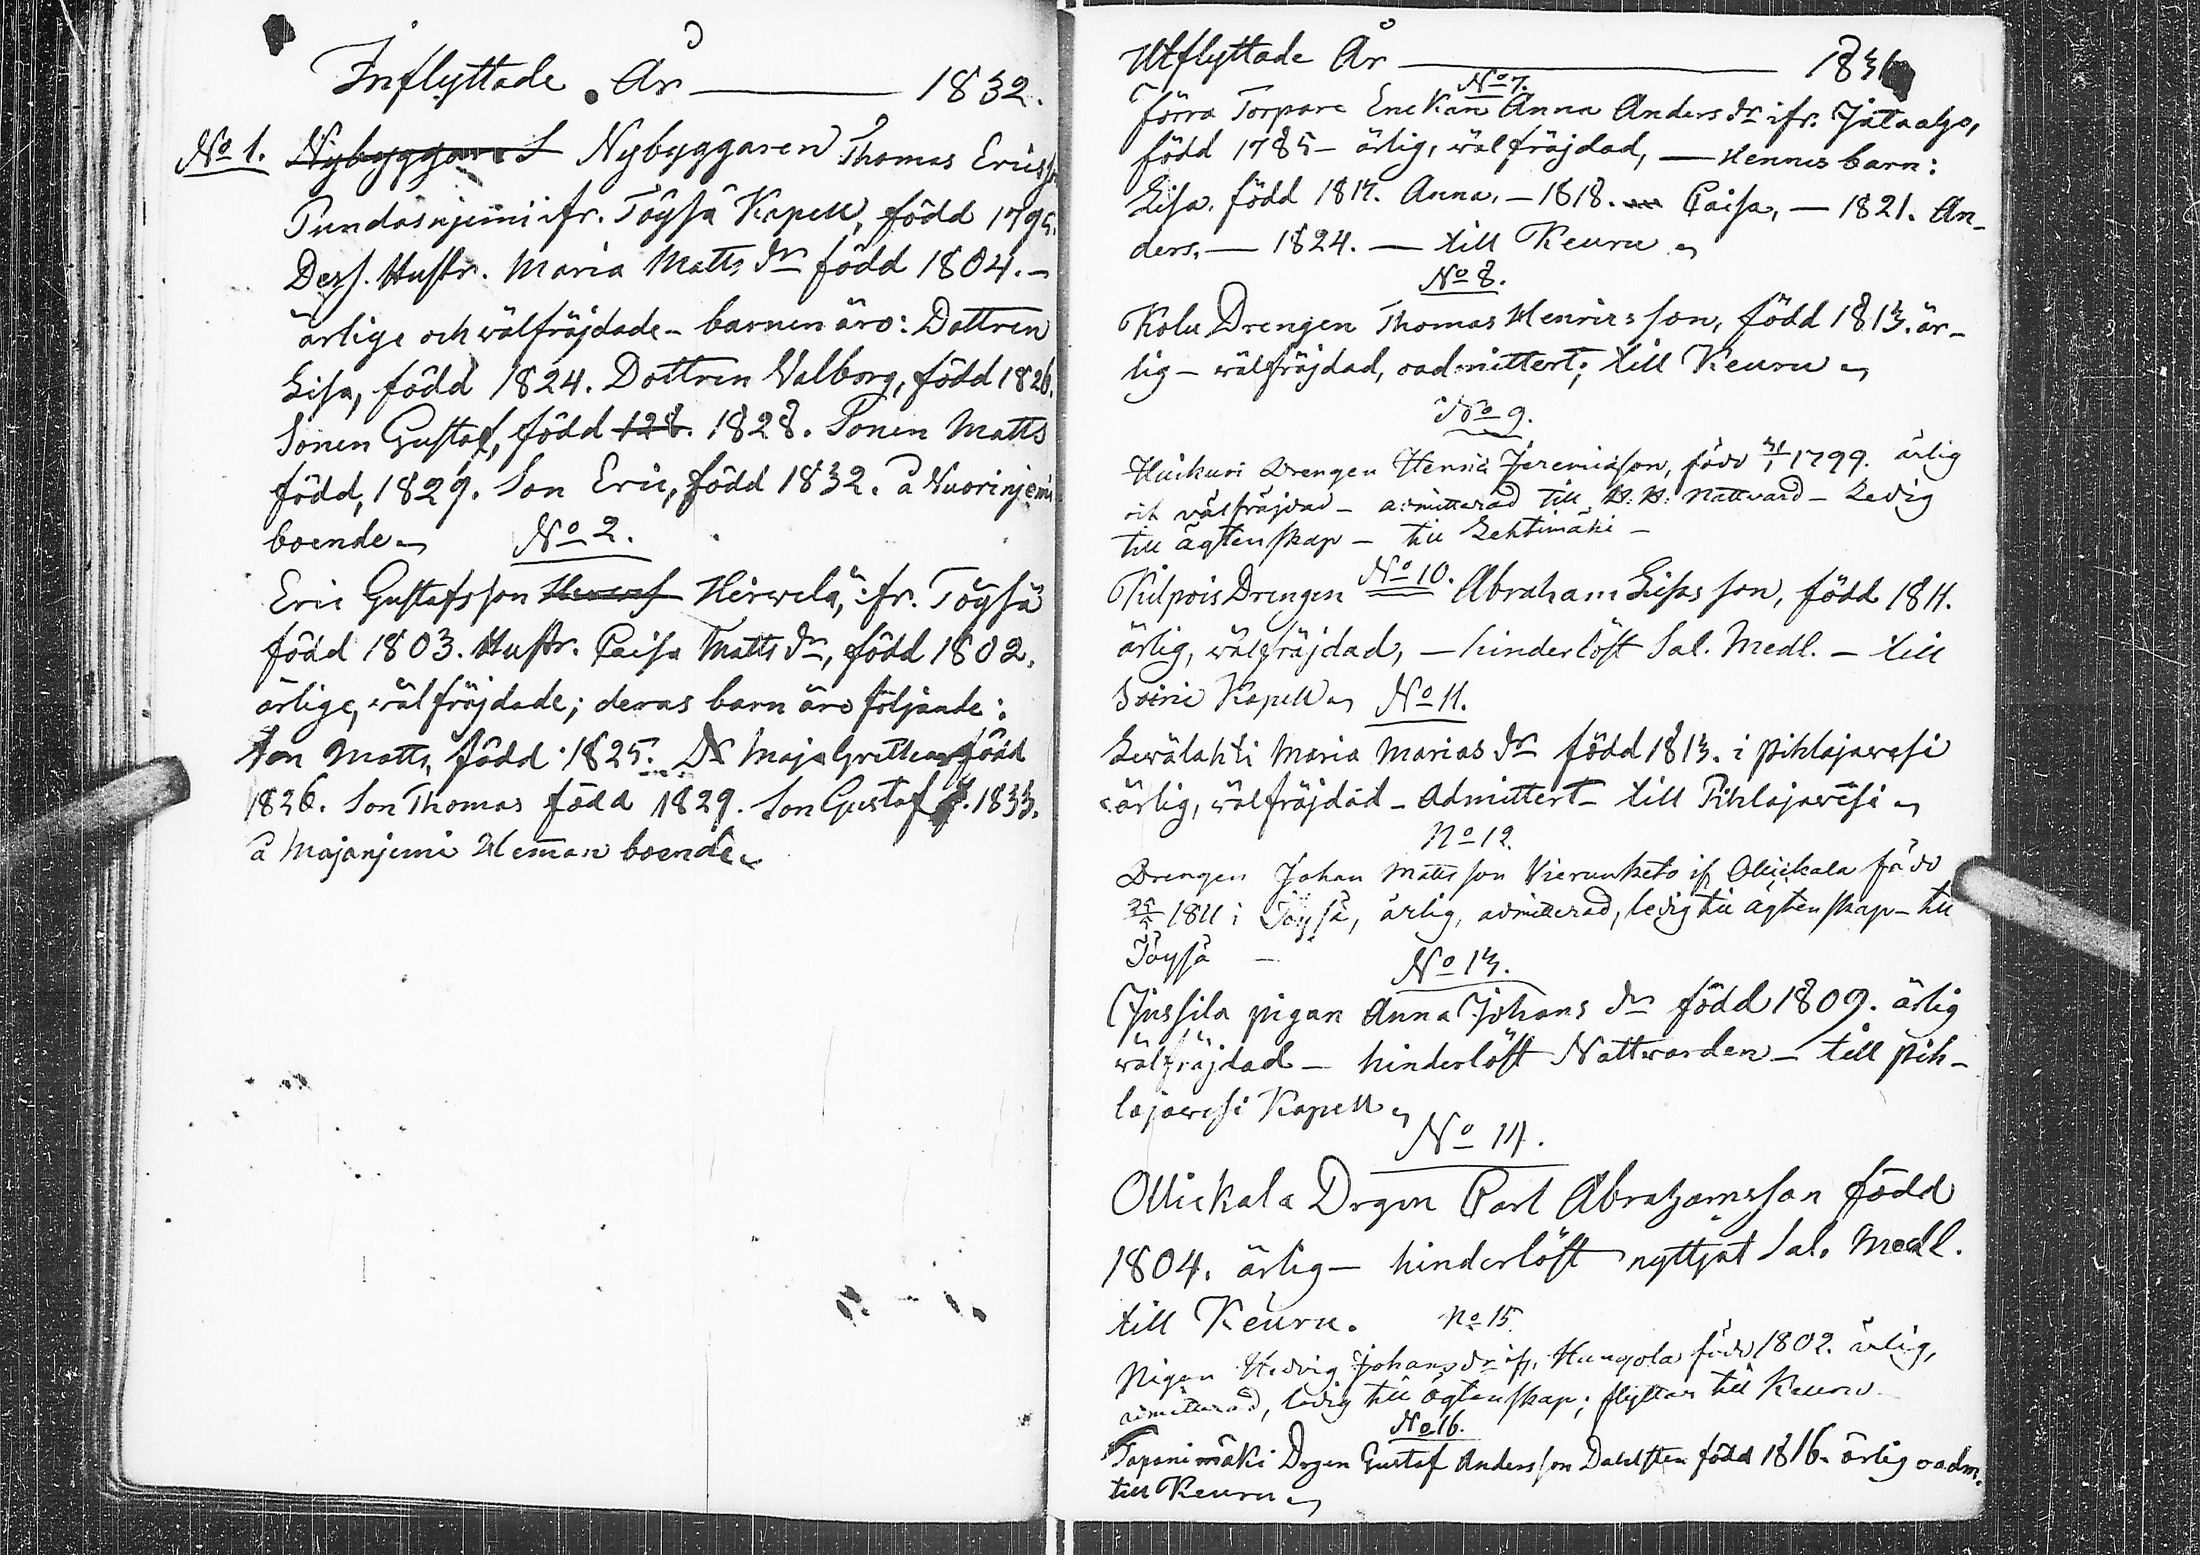 Inflyttade År — 1832.
No 1. Nybyggaren Thomas Ericsson
Pundasnjemi ifr. Töysä Kapell, född 1795.
Dess. Hustr. Maria Matts dr född 1804. –
ärlige och wälfräjdade – barnen äro: Dottren
Lisa, född 1824. Dottren Valborg, född 1826.
Sonen Gustaf, född 128. 1828. Sonen Matts
född, 1829. Son Eric, född 1832. å Nuorinjemi
boende
No 2.
Eric Gustafsson Hirvelä, ifr. Töysä
född 1803. Hustr. Caisa Matts dr, född 1802.
ärlige, wälfräjdade; deras barn äro följande:
Son Matts, född 1825. Dr Maja Gretha född
1826. Son Thomas född 1829. Son Gustaf f. 1833.
å Majanjemi Heman boende
Utflyttade År — 183
No 7.
förra Torpare Enekan Anna Anders dr ifr. Jätaalgo,
född 1785 – ärlig, wälfräjdad, — Hennes barn:
Lisa, född 1814. Anna, – 1818. Caisa, – 1821. An-
ders, – 1824. – till Keuru
No 8.
Kolu Drengen Thomas Henricsson, född 1813. är-
lig – wälfräjdad, oadmittert; till Keuru
No 9.
Huikuri Drengen Henric Jeremiasson, född 1799. ärlig
och välfräjdad – admitterad till H. H. Nattvard – Ledig
till ägtenskap – till Lehtimäki –
No 10.
Kilpois Drengen Abraham Lisasson, född 1811.
ärlig, wälfräjdad, – hinderlöst Sal. Medl. – till
Soini Kapell
No 11.
Lewälahti Maria Marias dr född 1813. i pihlajawesi
ärlig, wälfräjdad – Admittert – till Pihlajawesi
No 12.
Drengen Johan Mattsson Vierunketo ifr Ollickala född
1811 i Töysä, ärlig, admitterad, ledig till ägtenskap – till
Töysä –
No 13.
Jussila pigan Anna Johans dr född 1809. ärlig
wälfräjdad – hinderlöst Nattwarden – till pih-
lajawesi Kapell
No 14.
Ollickala Drgen Carl Abrahamsson född
1804. ärlig – hinderlöst nyttjat Sal. Medl.
till Keuru.
No 15.
Pigan Hedvig Johansdr ifr. Hangola född 1802. ärlig,
admitterad, ledig till ägtenskap; flyttar till Keuru
No 16.
Tapanimäki Drgen Gustaf Andersson Dahlsten född 1816. ärlig oadm.
till Keuru